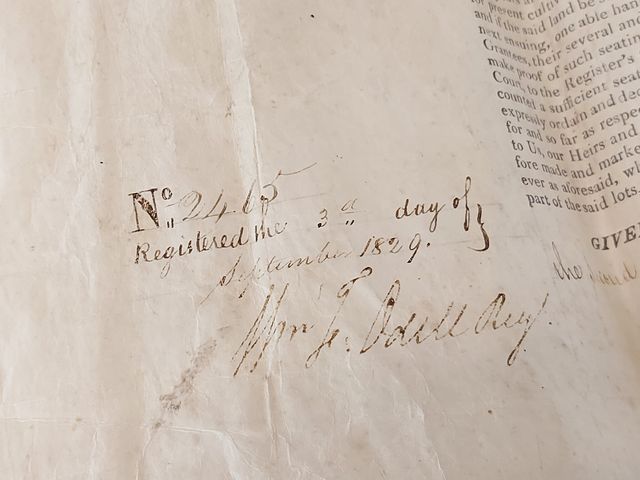 No. 2465
Registered the 3d day of
September 1829.
Wm F. Odell Reg.
for present cultiv
and if the said land be s
next ensuing, one able han
Grantees, their several and
make proof of such seatin
Court, to the Register's
counted a sufficient seat
expressly ordain and dec
for and so far as respec
to Us, our Heirs and
fore made and marke
ever as aforesaid, wh
part of the said lots.
GIVEN
the